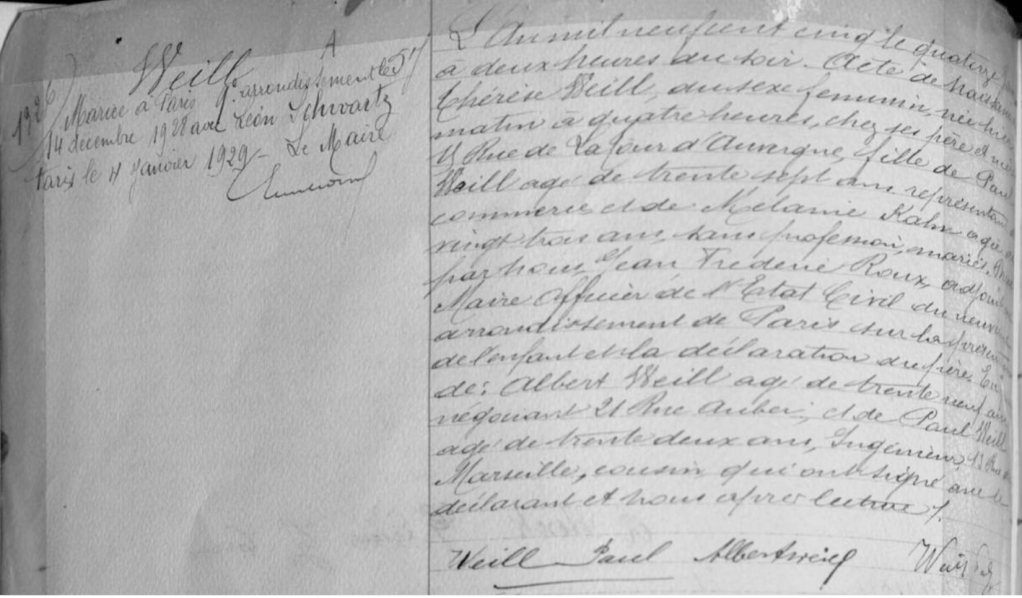 1926
Weill
Mariée à Paris 9e arrondissement le
14 décembre 1928 avec Léon Schwartz
Paris le 4 janvier 1929 - Le Maire
L'an mil neuf cent cinq le quatorze
à deux heures du soir. Acte de naissance
Thérèse Weill, du sexe féminin, née hier
matin à quatre heures, chez ses père et mère
Rue de La Tour d'Auvergne, fille de Paul
Weill agé de trente sept ans représentant
commerce et de Mélanie Kahn agée
vingt trois ans, sans profession, mariés.
par nous, Jean Fréderic Roux, adjoint
Maire Officier de l'Etat Civil du neuvième
arrondissement de Paris sur la présentation
de l'enfant et la déclaration du père. En
de: Albert Weill agé de trente neuf ans
négociant 21 Rue Auber, et de Paul Weill
agé de trente deux ans, Ingénieur, 13 Rue
Marseille, cousin, qui ont signé avec le
déclarant et nous après lecture /.
Weill Paul Albert Weill